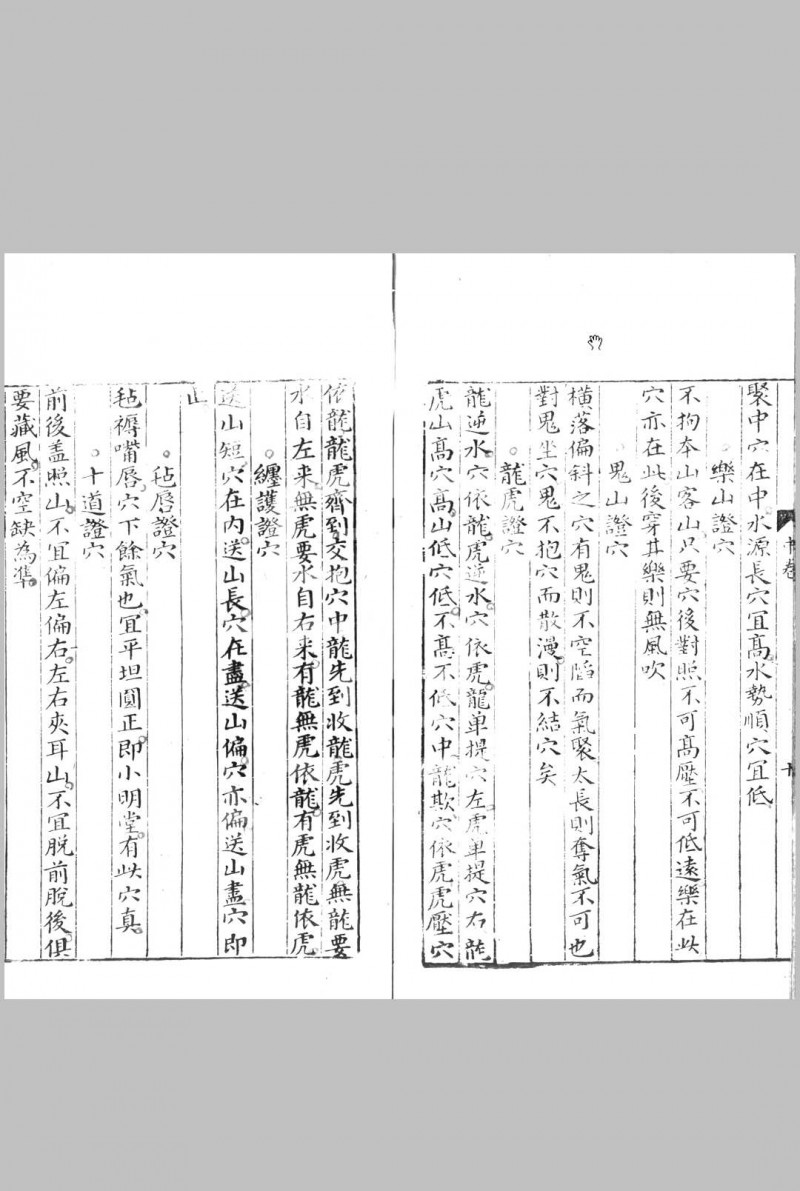 聚中穴在中水源長穴冝髙水勢順穴冝低
樂山證穴
不拘本山客山只要穴後對照不可髙壓不可低遠樂在此
穴亦在此後穿井樂則無風吹
鬼山證穴
橫落偏斜之穴有鬼則不空䧟而氣聚太長則奪氣不可也
對鬼坐穴鬼不抱穴而散漫則不結穴矣
龍虎證穴
龍逆水穴依龍虎逆水穴依虎龍单提穴左虎单提穴右龍
虎山髙穴髙山低穴低不髙不低穴中龍欺穴依虎虎壓穴
依龍龍虎齊到交抱穴中龍先到收龍虎先到收虎無龍要
水自左来無虎要水自右来有龍無虎依龍有虎無龍依虎
纏護證穴
送山短穴在内送山長穴在盡送山偏穴亦偏送山盡穴即
止
毡唇證穴
毡褥嘴唇穴下餘氣也冝平坦圓正即小明堂有此穴真
十道證穴
前後盖照山不冝偏左偏右左右夾耳山不冝脱前脱後俱
要藏風不空缺為準
中卷
十